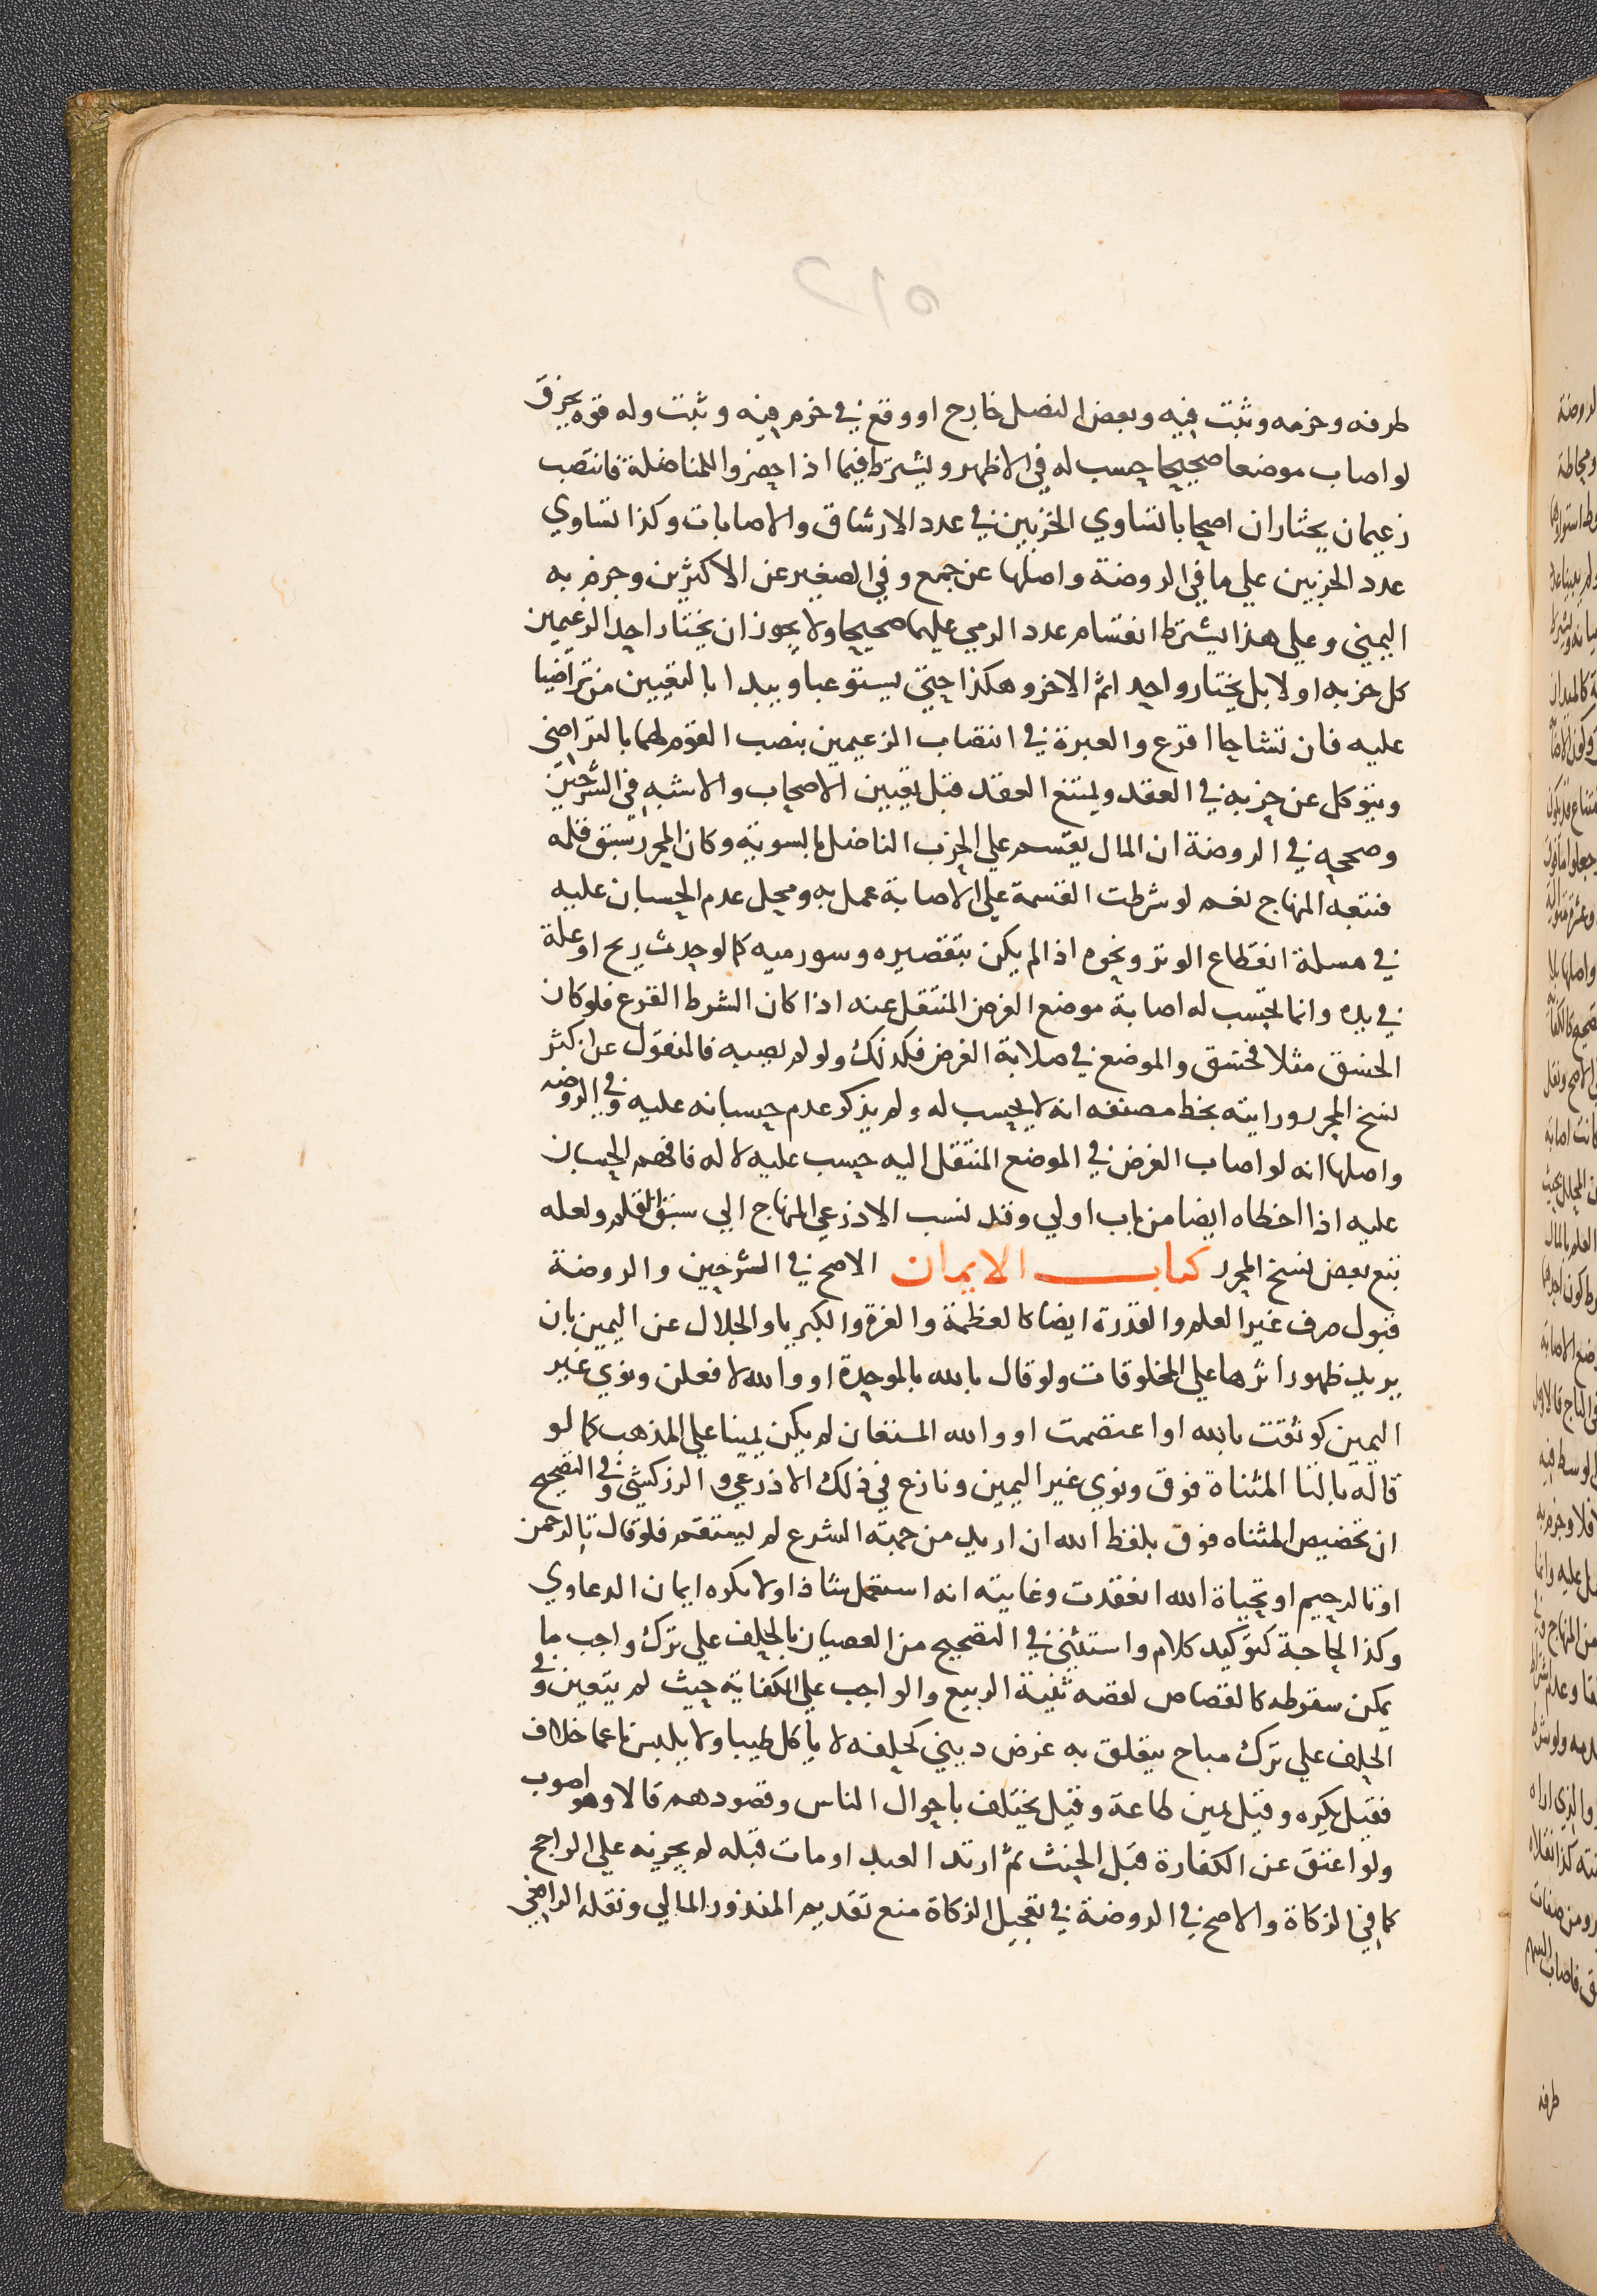 طرفه وخرمه وثبت فيه وبعض النصل خارج او وقع في خرم فيه وثبت وله قوة يخرق
لو اصاب موضعا صحيحا حسب له في الاظهر ويشترط فيما اذا حضروا للمناضلة فانتصب
زعيمان يختاران اصحابا تساوي الحزبين في عدد الارشاق والاصابات وكذا تساوي
عدد الحزبين علي ما في الروضة واصلها عن جمع وفي الصغير عن الاكثرين وجزم به
اليمني وعلي هذا يشترط انقسام عدد الرمي عليهما صحيحا ولا يجوز ان يختار احد الزعيمين
كل حزبه اولا بل يختار واحد اثم الاخر وهكذا حتي يستوعبا ويبدا بالتعيين من تراضيا
عليه فان تشاحا اقرع والعبرة في انتصاب الزعيمين بنصب القوم لهما بالتراضي
ويتوكل عن حزبه في العقد ويمتنع العقد قبل تعيين الاصحاب والاشبه في الشرحين
وصححه في الروضة ان المال يقسم علي الحزب الناضل بالسوية وكان المحرر سبق قلمه
فتبعه المنهاج نعم لو شرطت القسمة علي الاصابة عمل به ومحل عدم الحسبان عليه
في مسلة انقطاع الوتر ونحوه اذا لم يكن بتقصيره وسورميه كما لو حدث ريح او علة
في يده وانما تحتسب له اصابة موضع الغرض المنتقل عنه اذا كان الشرط القرع فلو كان
الخسق مثلا فخسق والموضع في صلابة الغرض فكذلك ولو لم يصبه فالمنقول عن اكثر
نسخ المحرر ورايته بخط مصنفه انه لا يحسب له ولم يذكر عدم حسبانه عليه وفي الروضه
واصلها انه لو اصاب الغرض في الموضع المنتقل اليه حسب عليه لا له فافهم الحسبان
عليه اذا اخطاه ايضا من باب اولي وقد نسب الاذرعي المنهاج الي سبق القلم ولعله
تبع بعض نسخ المحرر كتاب الايمان الاصح في الشرحين والروضة
قبول صرف غير العلم والقدرة ايضا كالعظمة والعزة والكبريا والجلال عن اليمين بان
يريد ظهور اثرها علي المخلوقات ولو قال بالله بالموحدة او والله لافعلن ونوي غير
اليمين كوثقت بالله او اعتصمت او والله المستعان لم يكن يمينا علي المذهب كما لو
قاله بالتا المثناة فوق ونوي غير اليمين ونازع في ذلك الاذرعي والزركشي وفي التصحيح
ان تخصيص المثناه فوق بلفظ الله ان اريد من جهة الشرع لم يستقم فلو قال تالرحمن
او تالرحيم او تحياة الله انعقدت وغايته انه استعمل شاذا ولا تكره ايمان الدعاوي
وكذا لحاجة كتوكيد كلام واستثني في التصحيح من العصيان بالحلف علي ترك واجب ما
يمكن سقوطه كالقصاص لقصه ثنية الربيع والواجب علي الكفاية حيث لم يتعين وفي
الحلف علي ترك مباح يتعلق به غرض ديني كحلفه لا ياكل طيبا ولا يلبس ناعما خلاف
فقيل يكره وقيل يمين طاعة وقيل يختلف باحوال الناس وقصودهم قالا وهو اصوب
ولو اعتق عن الكفارة قبل الحنث ثم ارتد العبد او مات قبله لم يجزيه علي الراجح
كما في الزكاة والاصح في الروضة في تعجيل الزكاة منع تقديم المنذور المالي ونقله الرافعي